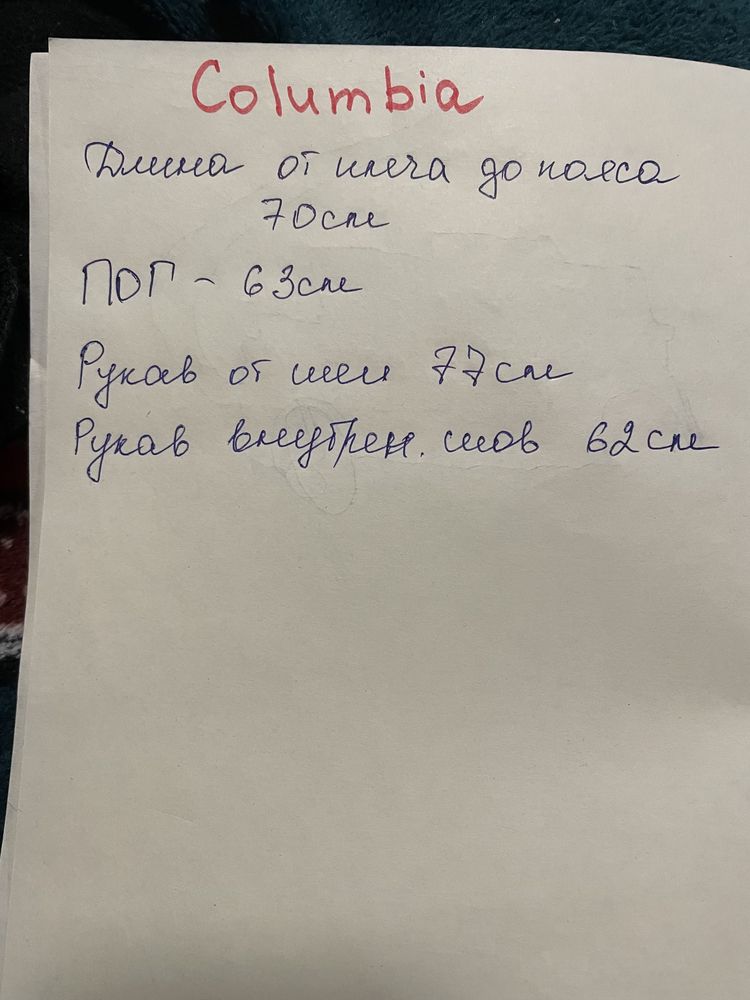 Columbia
Длина от плеча до пояса
70см
ПОГ - 63см
Рукав от шеи 77см
Рукав внутрен. шов 62см